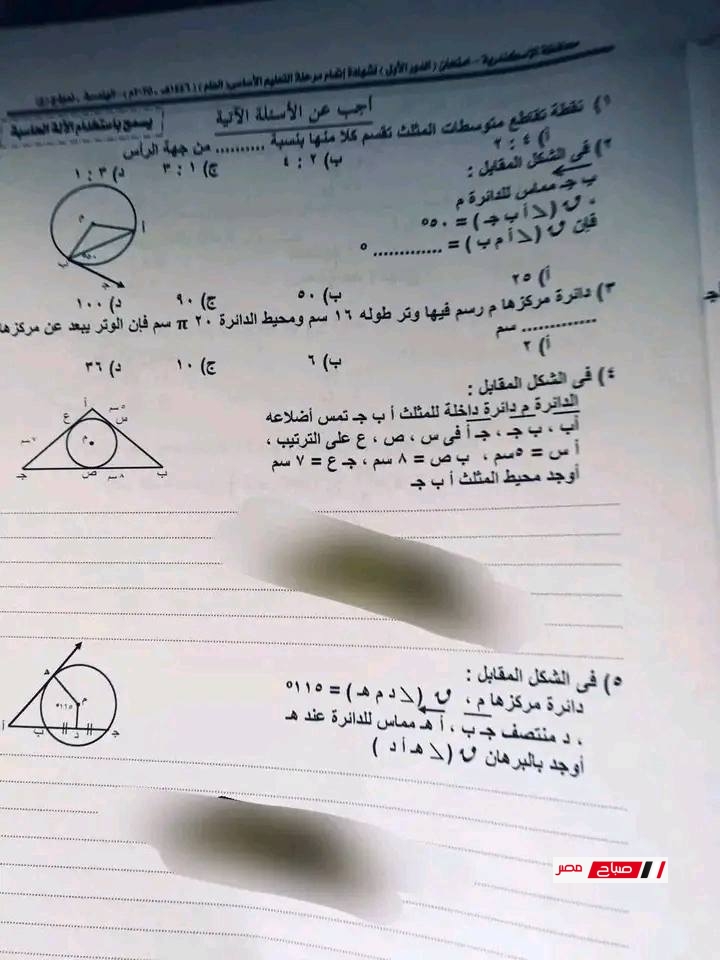 محافظة الإسكندرية - امتحان ( الدور الأول ) لشهادة إتمام مرحلة التعليم الأساسي العام ( ١٤٤٦هـ - ٢٠٢٥م ) - الهندسة
أجب عن الأسئلة الآتية
يسمح باستخدام الآلة الحاسبة
١) نقطة تقاطع متوسطات المثلث تقسم كلا منها بنسبة .......... من جهة الرأس
أ) ٤ : ٢ ب) ٢ : ٤ ج) ١ : ٣ د) ٣ : ١
٢) في الشكل المقابل :
ب جـ مماس للدائرة م
، ق (∠ أ ب جـ ) = ٥٠°
فإن ق (∠ أ م ب ) = ............. °
م
أ
٥٠°
ب
جـ
أ) ٢٥ ب) ٥٠ ج) ٩٠ د) ١٠٠
٣) دائرة مركزها م رسم فيها وتر طوله ١٦ سم ومحيط الدائرة ٢٠ π سم فإن الوتر يبعد عن مركزها
............. سم
أ) ٢ ب) ٦ ج) ١٠ د) ٣٦
٤) في الشكل المقابل :
الدائرة م دائرة داخلة للمثلث أ ب جـ تمس أضلاعه
أب ، ب جـ ، جـ أ في س ، ص ، ع على الترتيب ،
أ س = ٥سم ، ب ص = ٨ سم ، جـ ع = ٧ سم
أوجد محيط المثلث أ ب جـ
أ
٥سم
ع
س
م
٧سم
جـ
ص
٨سم
ب
٥) في الشكل المقابل :
دائرة مركزها م ، ق (∠ د م هـ ) = ١١٥°
، د منتصف جـ ب ، أ هـ مماس للدائرة عند هـ
أوجد بالبرهان ق (∠ هـ أ د )
هـ
م
١١٥°
أ
ب
د
جـ
صباح مصر